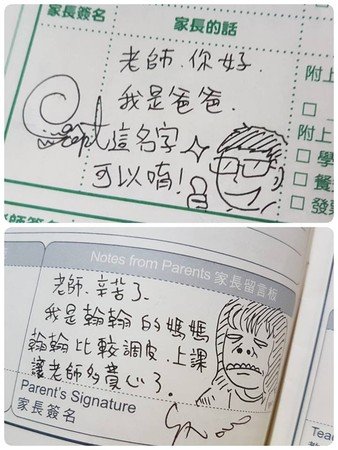 家長簽名 家長的話
老師.你好.
我是爸爸.
這名字
可以唷!
附上
附上
學
餐
發票
師簽名
Notes from Parents 家長留言板
老師、辛苦了、
我是翰翰的媽媽
翰翰比較調皮、上課
讓老師多費心了.
Parent's Signature
家長簽名